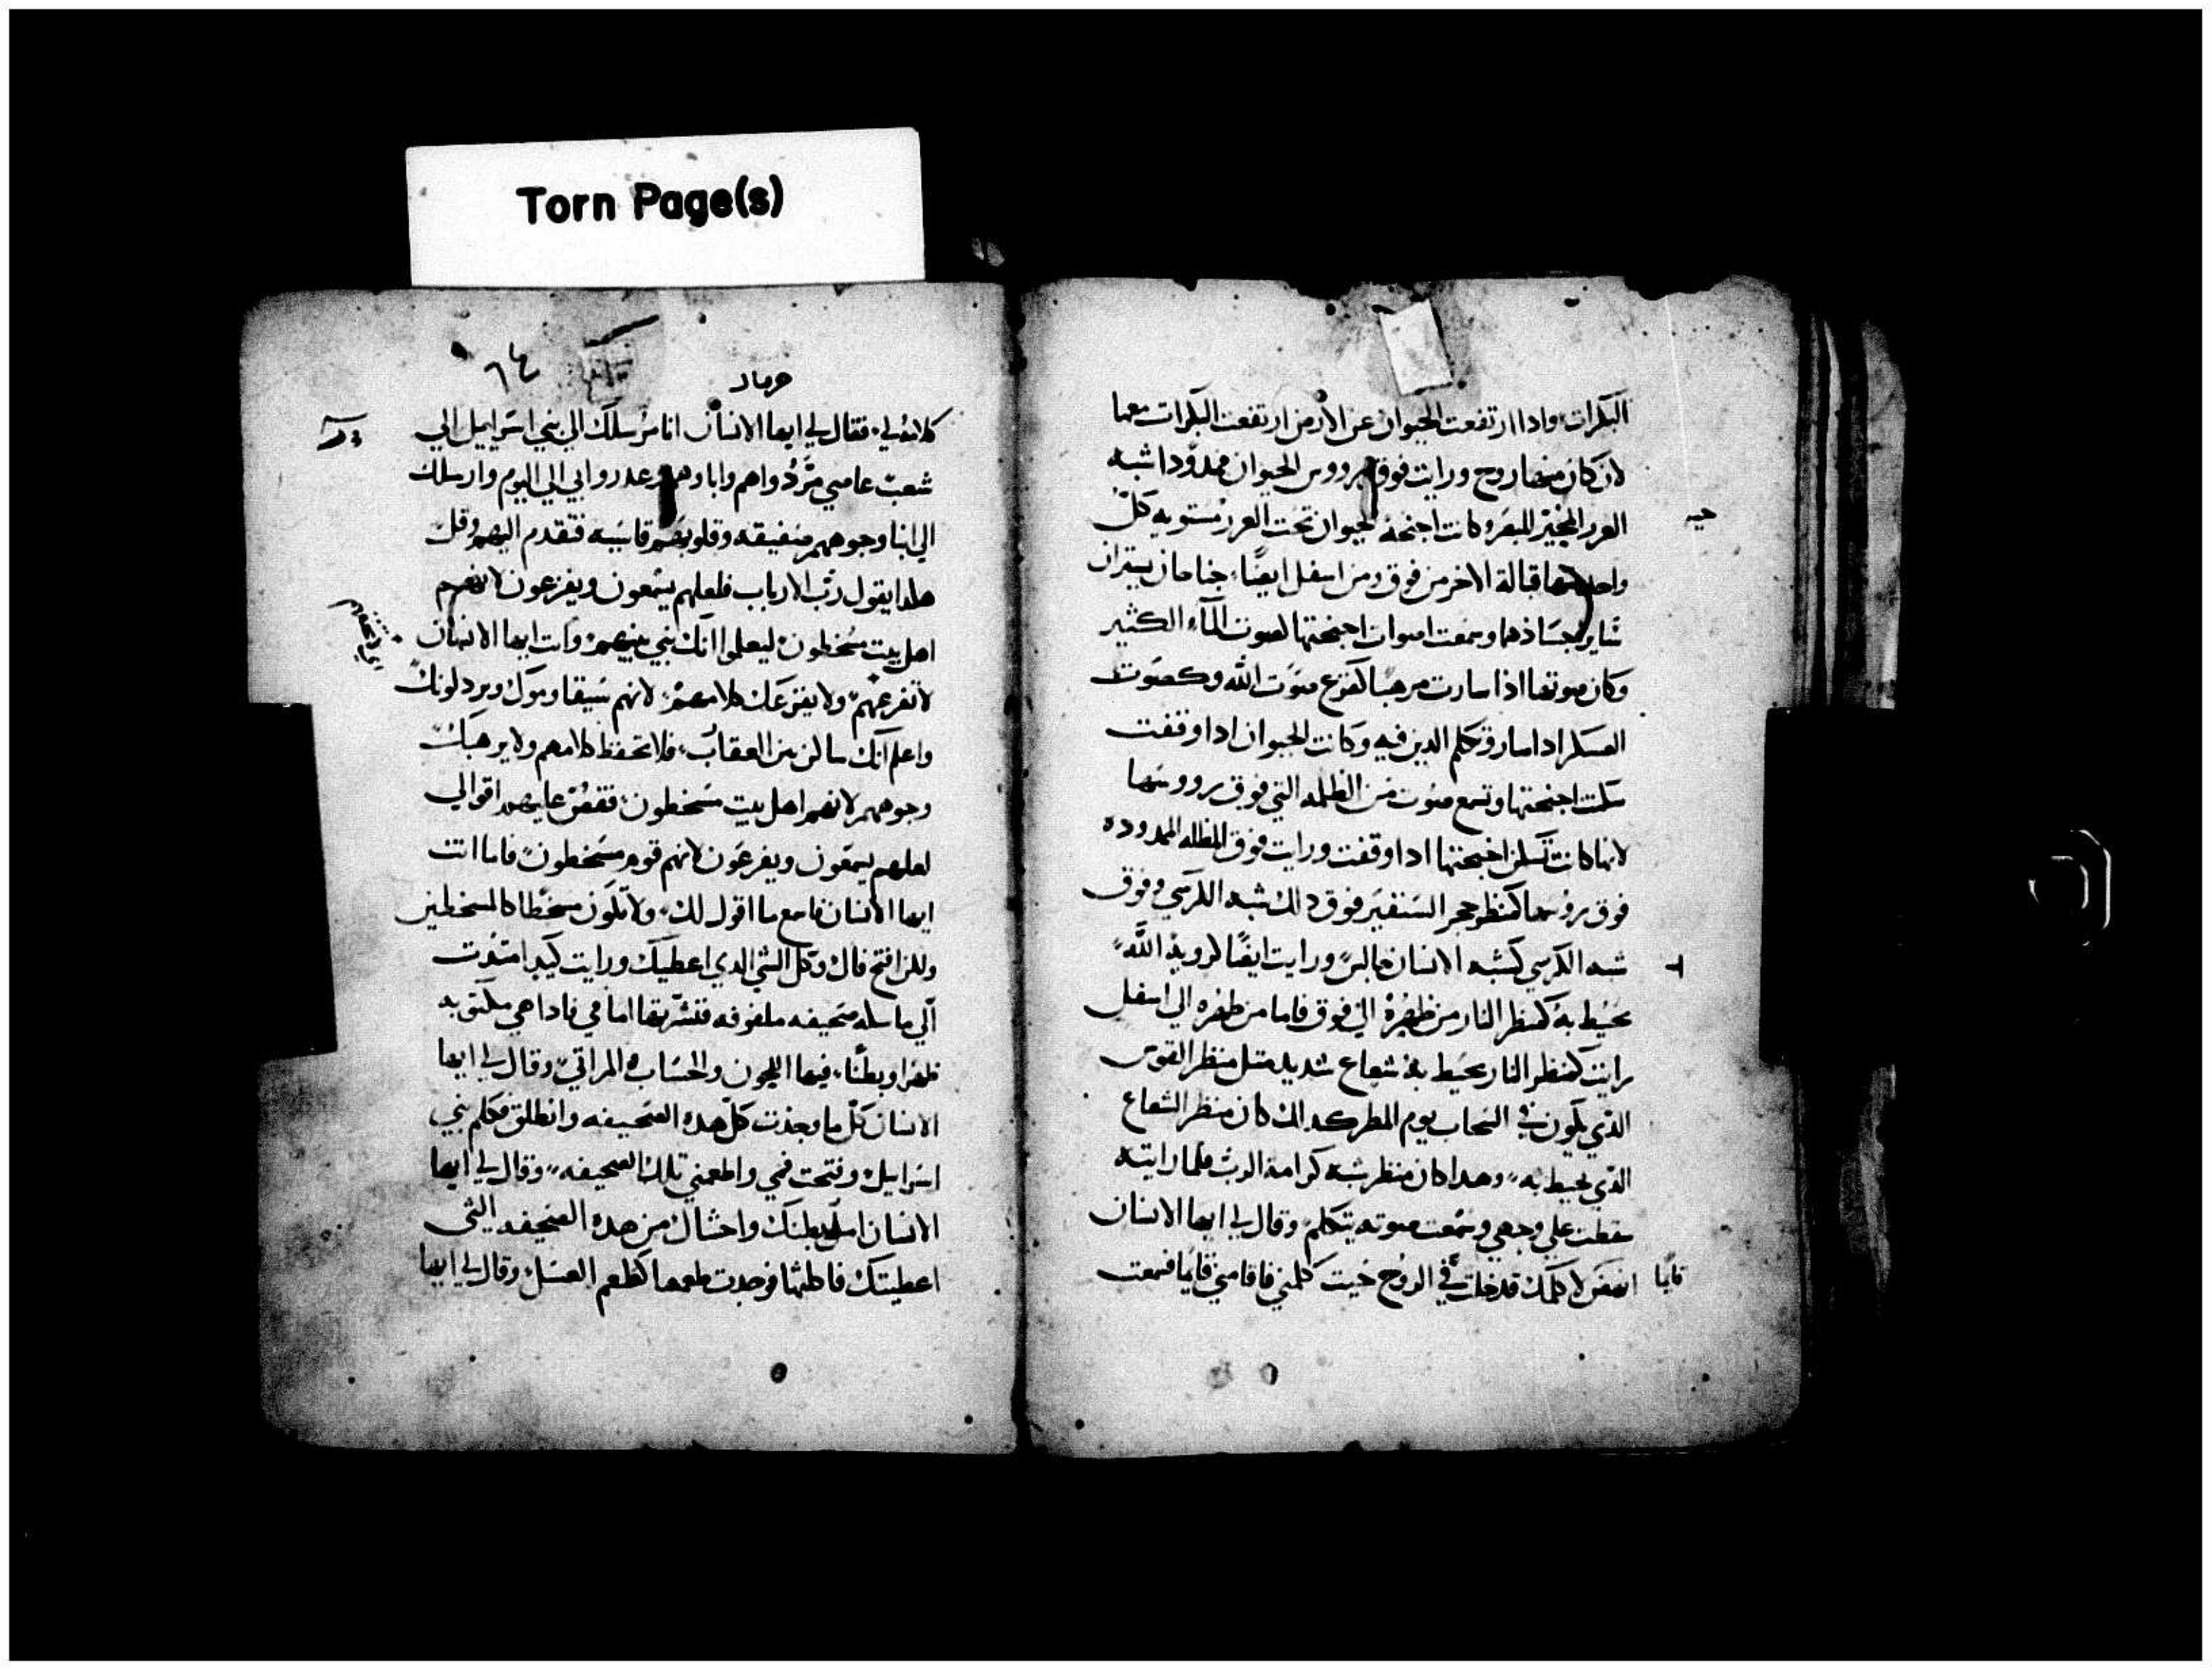 Torn Page(s)
البكرات واذا ارتفعت الحيوان عن الارض ارتفعت البكرات معها
لان كان منها روح ورايت فوق رووس الحيوان ممدودا شبه
وكانت اجنحة الحيوان تحت مستويه كل
قبالة الاخر من فوق ومن اسفل ايضا جناحان يستران
وسمعت اصوات اجنحتها كصوت المآء الكثير
وكان صوتها اذا سارت مرهبا كفزع صوت الله وكصوت
العسكر اذا سار وتكلم الدين فيه وكانت الحيوان ادا وقفت
اجنحتها وتسمع صوت من الظلمه التي فوق رووسها
لانها كانت تسكن اجنحتها ادا وقفت ورايت فوق المظله الممدوده
فوق روسها كمنظر حجر السنفير فوق دالك شبه الكرسي وفوق
شبه الكرسي كشبه الانسان جالس ورايت ايضا كروية الله
يحيط به كمنظر النار من ظهره الي فوق فاما من ظهره الي اسفل
رايت كمنظر النار يحيط به شعاع شديد مثل منظر القوس
الدي يكون في السحاب يوم المطر كدالك كان منظر الشعاع
الدي يحيط به وهدا كان منظر شبه كرامة الرب فلما رايته
سقطت علي وجهي وسمعت صوته يتكلم وقال لي ايها الانسان
انهض لاكلمك فدخلت في الروح حيت كلمني فاقامني قايما فسمعت
قايما
٦٤
كلامه لي فقال لي ايها الانسان انا مرسلك الي بني اسراييل الي
شعب عاصي مردوا هم واباوهم وغدروا بي الي اليوم وارسلك
الي ابنا وجوههم صفيقه وقلوبهم قاسيه فتقدم اليهم وقل
هكدا يقول رب الارباب فلعلهم يسمعون ويفزعون لانهم
اهل بيت مسخطون ليعلموا انك نبي بينهم وانت ايها الانسان
لا تفزعهم ولا يفزعك كلامهم لانهم سيقاوموك ويردلونك
واعلم انك ساكن بين العقارب فلا تحفظ كلامهم ولا يرهبك
وجوههم لانهم اهل بيت مسخطون فقص عليهم اقوالي
لعلهم يسمعون ويفزعون لانهم قوم مسخطون فاما انت
ايها الانسان فاسمع ما اقول لك ولا تكون مسخطا كالمسخطين
ولكن افتح فاك وكل الشي الدي اعطيك ورايت كيدا امتدت
الي ماسكه صحيفه ملفوفه فنشرتها امامي فادا هي مكتوبه
ظهرا وبطنا فيها اللحون والحساب والمراتي وقال لي ايها
الانسان كل ما وجدت كل هده الصحيفه وانطلق فكلم بني
اسراييل وفتحت فمي واطعمني تلك الصحيفه وقال لي ايها
الانسان املي بطنك واحشاك من هده الصحيفه التي
اعطيتك فاكلتها فوجدت طعمها كطعم العسل وقال لي ايها